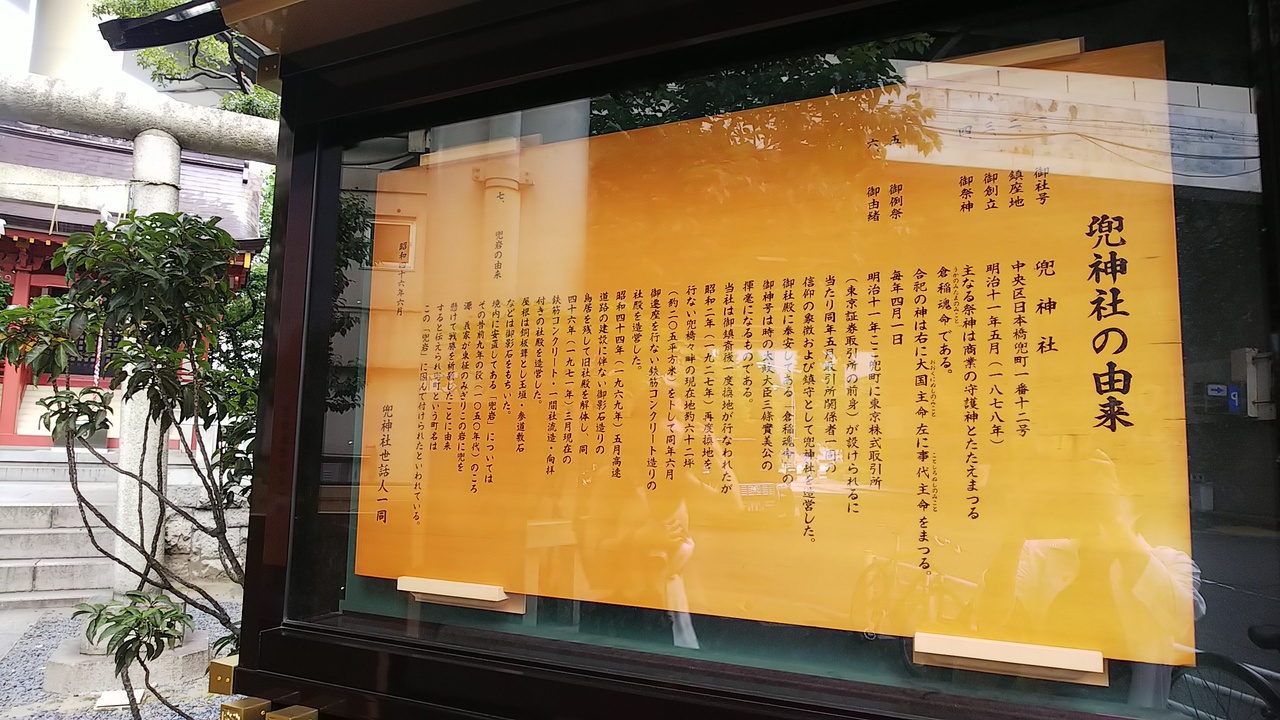 兜神社の由来
一 御社号 兜神社
二 鎮座地 中央区日本橋兜町一番十二号
三 御創立 明治十一年五月(一八七八年)
四 御祭神 主なる祭神は商業の守護神とたたえまつる
倉稲魂命である。
うかのみたまのみこと
合祀の神は右に大国主命左に事代主命をまつる。
おおくにぬしのみこと ことしろぬしのみこと
五 御例祭 毎年四月一日
六、御由緒 明治十一年ここ兜町に東京株式取引所
(東京証券取引所の前身)が設けられるに
当たり同年五月取引所関係者一同の
信仰の象徴および鎮守として兜神社を造営した。
御社殿に奉安してある「倉稲魂命」の
御神号は時の太政大臣三條實美公の
揮毫になるものである。
当社は御鎮斎後一度換地が行なわれたが
昭和二年(一九二七年)再度換地を
行ない兜橋々畔の現在地約六十二坪
(約二〇五平方米)をとして同年六月
御遷座を行ない鉄筋コンクリート造りの
社殿を造営した。
昭和四十四年(一九六九年)五月高速
道路の建設に伴ない御影石造りの
鳥居を残して旧社殿を解体し、同
四十六年(一九七一年)三月現在の
鉄筋コンクリート・一間社流造・向拝
付きの社殿を造営した。
屋根は銅板葺とし玉垣・参道敷石
などは御影石をもちいた。
七、兜岩の由来 境内に安置してある「兜岩」については
その昔前九年の役(一〇五〇年代)のころ
源 義家が東征のみぎりこの岩に兜を
懸けて戦勝を祈願したことに由来
すると伝えられ兜町という町名は
この「兜岩」に因んで付けられたといわれている。
昭和四十六年六月
兜神社世話人一同